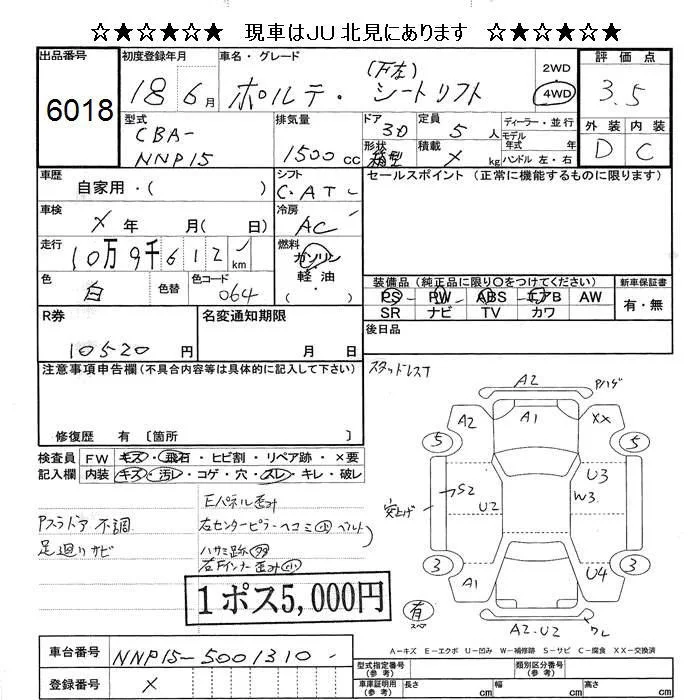 ☆★☆★☆★ 現車はJU北見にあります ☆★☆★☆★
出品番号 初度登録年月 車名・グレード 評価点
6018 18 6月 ポルテ・シートリフト (下左) 2WD 4WD 3.5
型式 排気量 ドア 定員 ディーラー・並行 外装 内装
CBA- NNP15 1500cc 3D 5人 モデル年式 年式 D C
形状 積載 箱型 × kg ハンドル 左・右
車歴 シフト セールスポイント (正常に機能するものに限ります)
自家用・( ) C.AT
車検 冷房
×年 月( 日) AC
走行 燃料
10万9千612 km ガソリン・軽油・( )
色 色替 色コード 装備品 (純正品に限り○をつけてください) 新車保証書
白 064 PS PW ABS エアB AW 有・無
SR ナビ TV カワ
R券 名変通知期限 後日品
10520円 月 日
注意事項申告欄 (不具合内容等は具体的に記入して下さい)
スタッドレス
修復歴 有 〔箇所 〕
検査員 FW キズ・飛石・ヒビ割・リペア跡・×要
記入欄 内装 キズ・汚レ・コゲ・穴・スレ・キレ・破レ
Eパネル歪み
Pスラドア不調 右センターピラーヘコミ(小) ベルト
足廻りサビ ハサミ跡
右Fインナー歪み(小)
1ポス5,000円
A2 Pハゲ
A2 A1 XX
5 5
S2 U2 U3 W3
突上げ
3 3
A1 U4
有 スペア
A2.U2 ワレ
A-キズ E-エクボ U-凹み W-補修跡 S-サビ C-腐食 XX-交換済
車台番号 NNP15-5001310
登録番号 ×
型式指定番号 (参考) 類別区分番号 (参考)
車庫証明用 (参考) 長さ cm 幅 cm 高さ cm